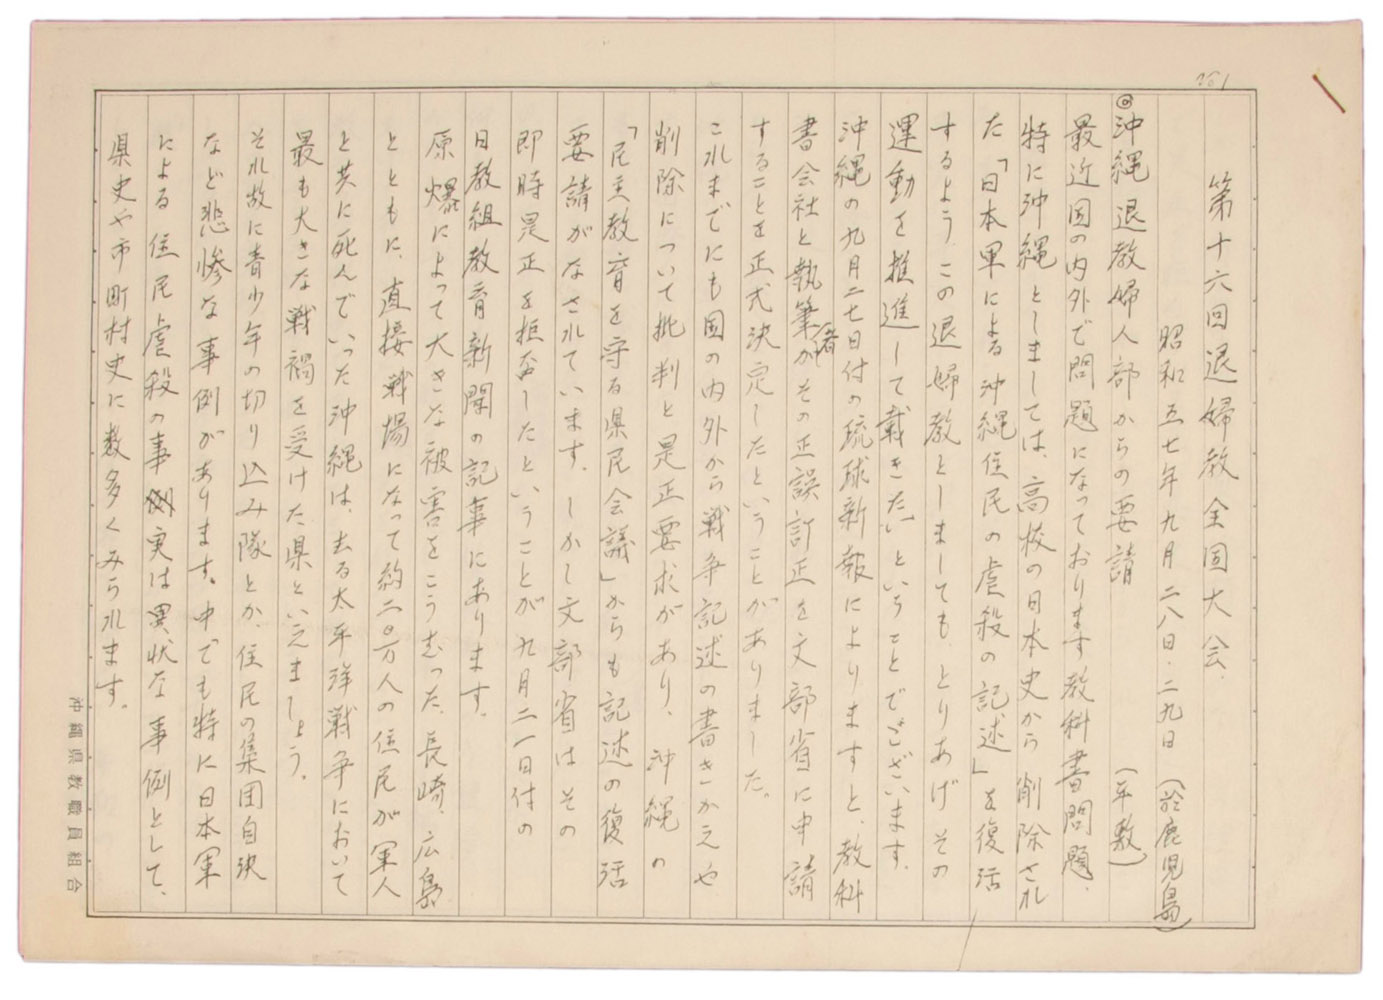 第十六回退婦教全国大会.
昭和五七年九月二八日・二九日(於鹿児島)
◎沖縄退教婦人部からの要請 (平敷)
最近国の内外で問題になっております教科書問題、
特に沖縄としましては、高校の日本史から削除され
た「日本軍による沖縄住民の虐殺の記述」を復活
するよう、この退婦教としましても、とりあげその
運動を推進して載きたいということでございます.
沖縄の九月二七日付の琉球新報によりますと、教科
書会社と執筆者がその正誤訂正を文部省に申請
することを正式決定したということがありました。
これまでにも国の内外から戦争記述の書きかえや
削除について批判と是正要求があり、沖縄の
「民主教育を守る県民会議」からも記述の復活
要請がなされています.しかし文部省はその
即時是正を拒否したということが九月二一日付の
日教組教育新聞の記事にあります。
原爆によって大きな被害をこうむった、長崎、広島
とともに、直接戦場になって約二〇万人の住民が軍人
と共に死んでいった沖縄は、去る太平洋戦争において
最も大きな戦禍を受けた県といえましょう。
それ故に青少年の切り込み隊とか、住民の集団自決
など悲惨な事例があります。中でも特に日本軍
による住民虐殺の事実は異状な事例として、
県史や市町村史に数多くみられます。
沖縄県教職員組合